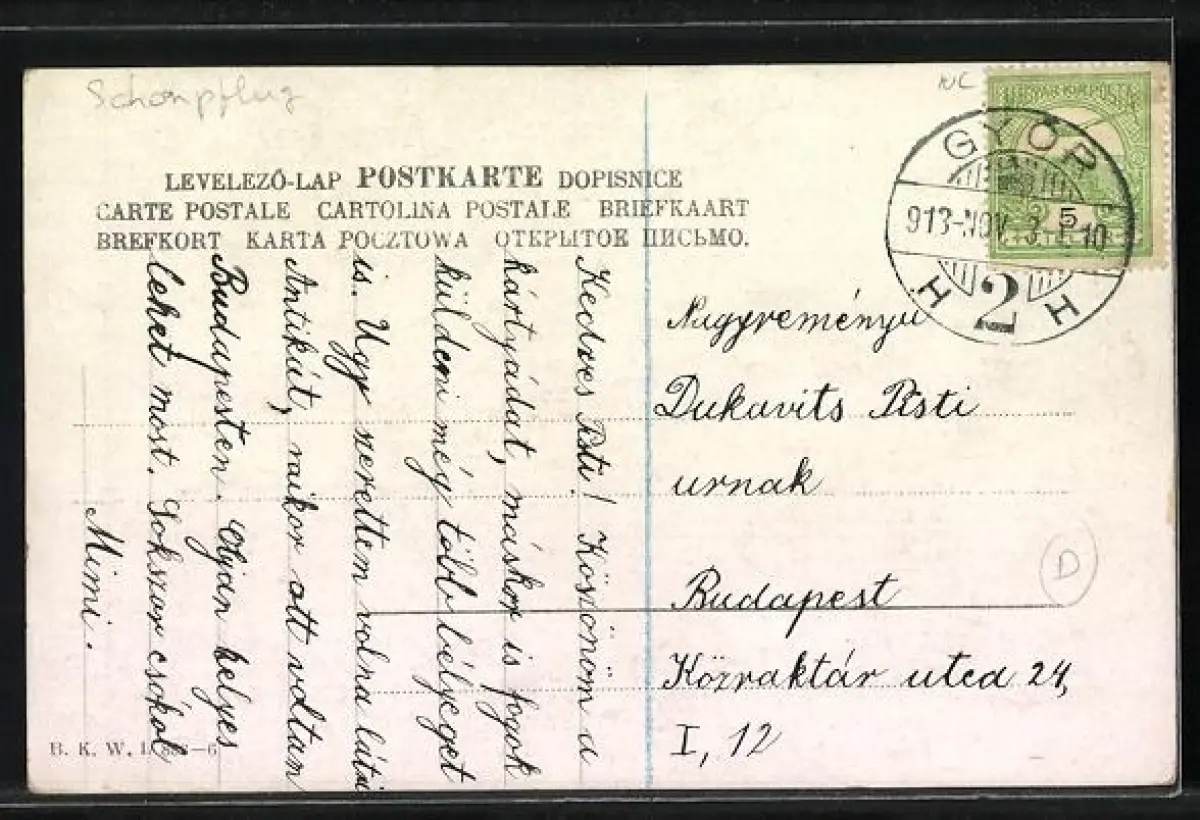 Schönpflug
LEVELEZŐ-LAP POSTKARTE DOPISNICE
CARTE POSTALE CARTOLINA POSTALE BRIEFKAART
BREFKORT KARTA POCZTOWA ОТКРЫТОЕ ПИСЬМО.
MAGYAR KIR. POSTA
5
GYŐR
913-NOV. 3. 10
H 2 H
Nagyreményű
Dukavits Pisti
urnak
Budapest
Közraktár utca 24,
I, 12
D
Kedves Pisti! Köszönöm a
kártyádat, máskor is fogok
küldeni még több bélyeget
is. Ugy szerettem volna látni
Antikát, mikor ott voltam
Budapesten. Olyan helyes
lehet most. Sokszor csókol
Mimi.
B. K. W. I.